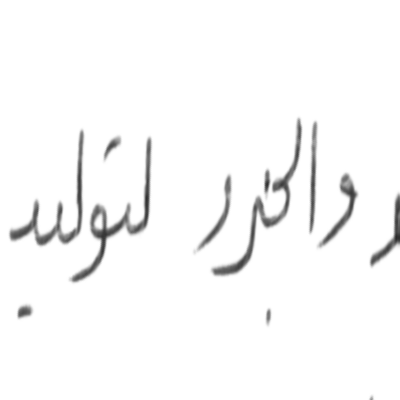 والجزر لتوليد